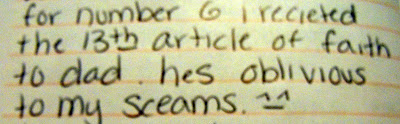 for number 6 i recieted
the 13th article of faith
to dad. hes oblivious
to my sceams. ^^